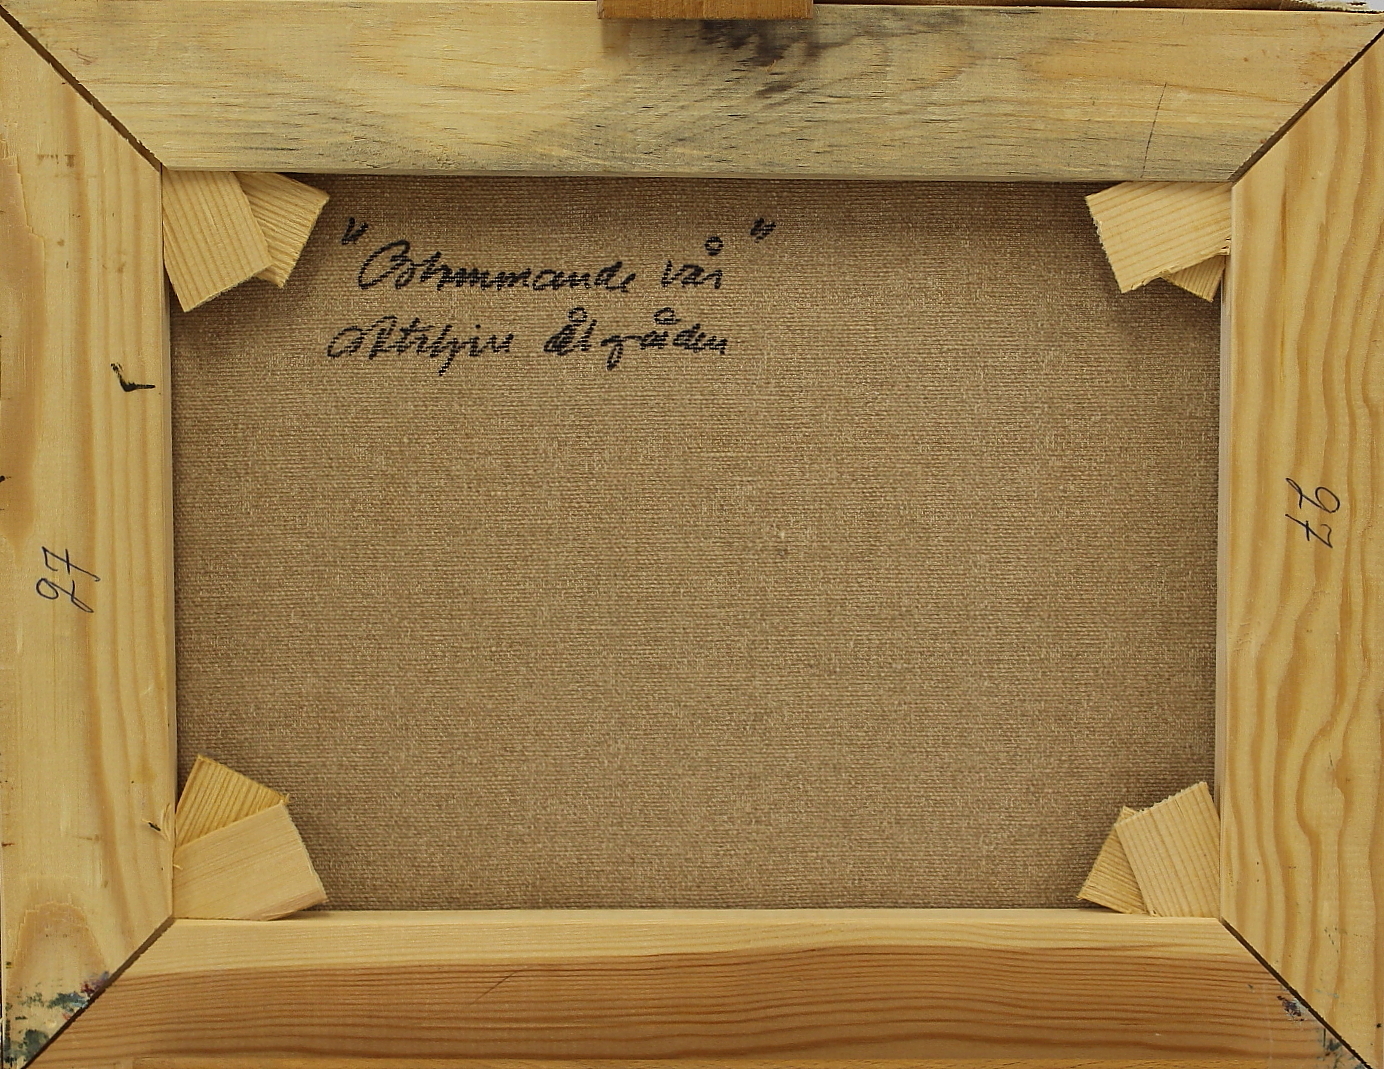 "Blommande vår"
Ateljén Ålgården
27
27